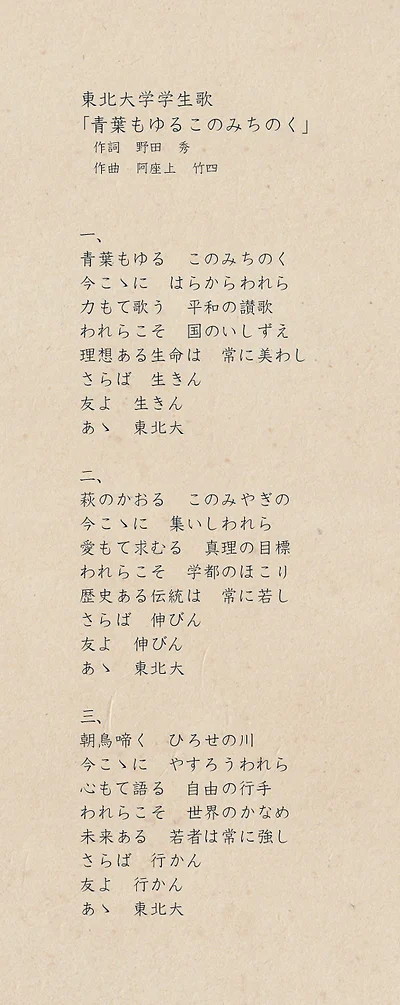 東北大学学生歌
「青葉もゆるこのみちのく」
作詞　野田　秀
作曲　阿座上　竹四
一、
青葉もゆる　このみちのく
今こゝに　はらからわれら
力もて歌う　平和の讃歌
われらこそ　国のいしずえ
理想ある生命は　常に美わし
さらば　生きん
友よ　生きん
あゝ　東北大
二、
萩のかおる　このみやぎの
今こゝに　集いしわれら
愛もて求むる　真理の目標
われらこそ　学都のほこり
歴史ある伝統は　常に若し
さらば　伸びん
友よ　伸びん
あゝ　東北大
三、
朝鳥啼く　ひろせの川
今こゝに　やすろうわれら
心もて語る　自由の行手
われらこそ　世界のかなめ
未来ある　若者は常に強し
さらば　行かん
友よ　行かん
あゝ　東北大